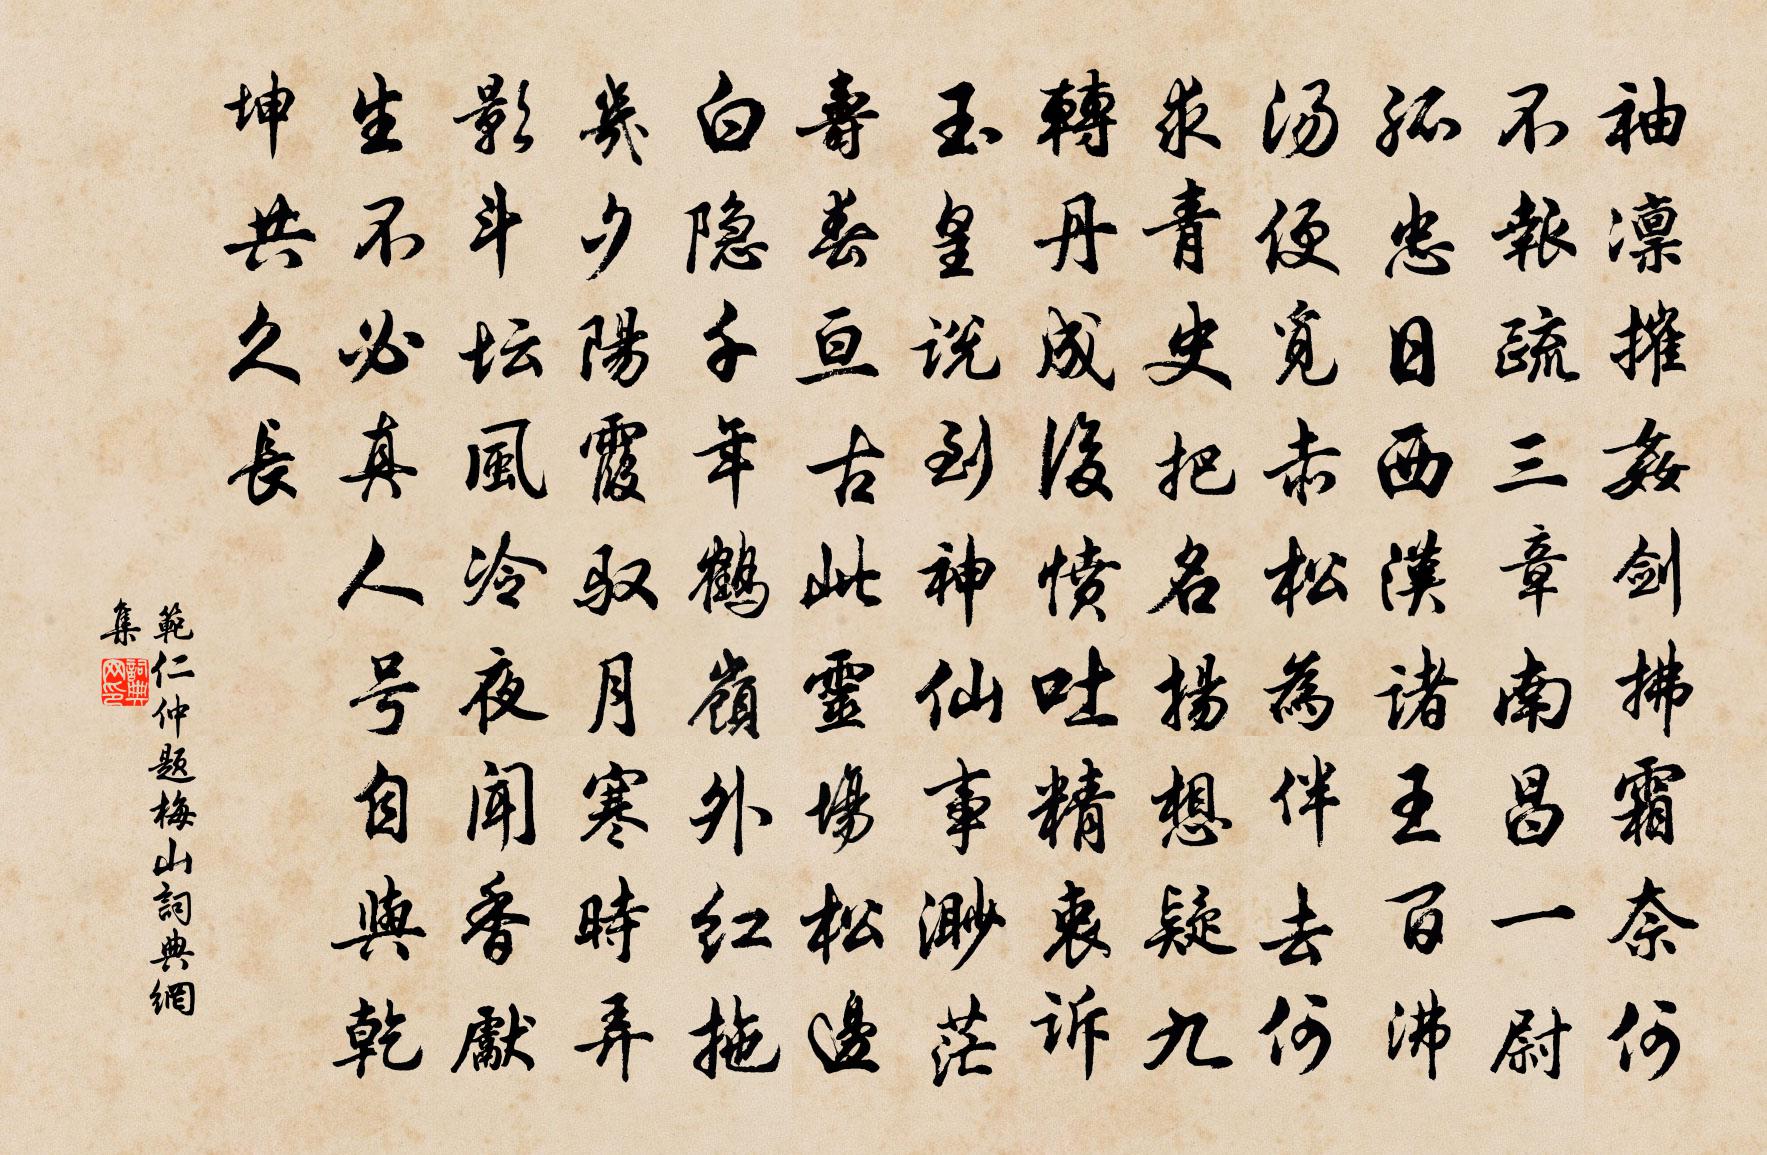 袖凛摧姦剑拂霜奈何
不報疏三章南昌一尉
孤忠日西漢诸王百沸
汤便觅赤松為伴去何
求青史把名揚想疑九
轉丹成後愤吐精衷诉
玉皇説到神仙事渺茫
壽春亘古此靈場松邊
白隐千年鶴嶺外红拖
幾夕陽霞驭月寒時弄
影斗坛風冷夜闻香獻
生不必真人号自與乾
坤共久長
範仁仲题梅山詞典網
集
詞典网印